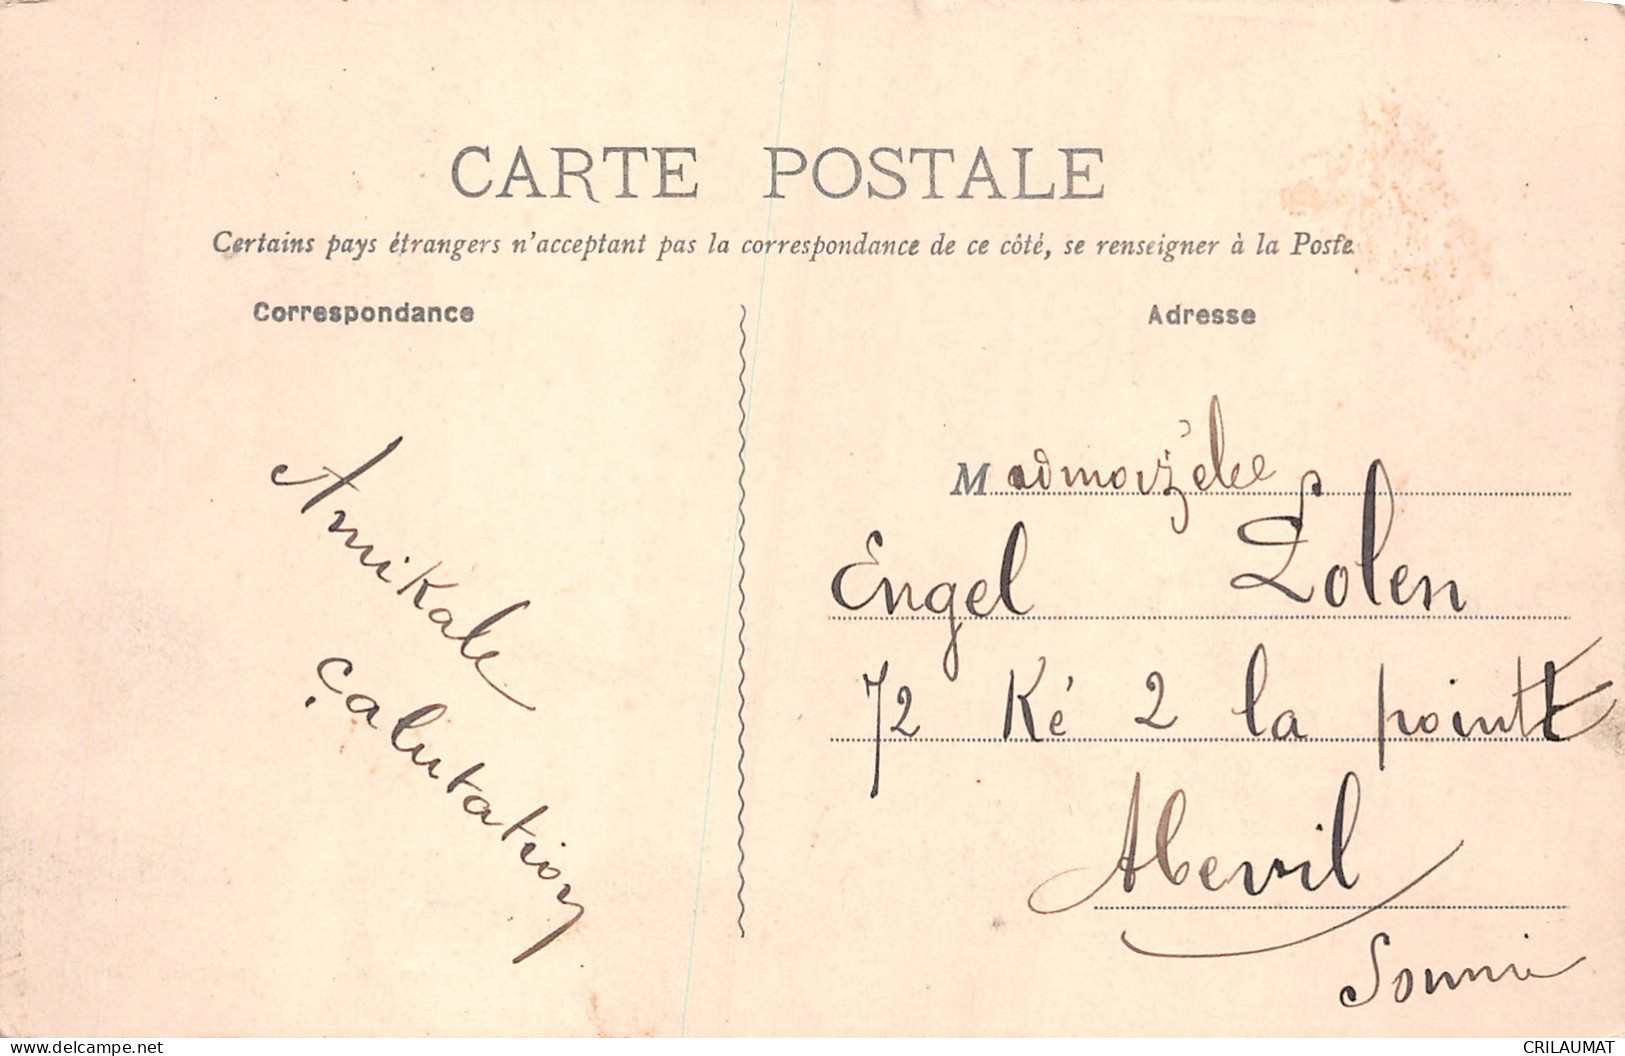 CARTE POSTALE
Certains pays étrangers n'acceptant pas la correspondance de ce côté, se renseigner à la Poste
Correspondance
Adresse
Amikale
çalutation
Madmoizelle
Engel Lolen
72 Ké 2 la pointe
Abevil
Somme
www.delcampe.net
CRILAUMAT